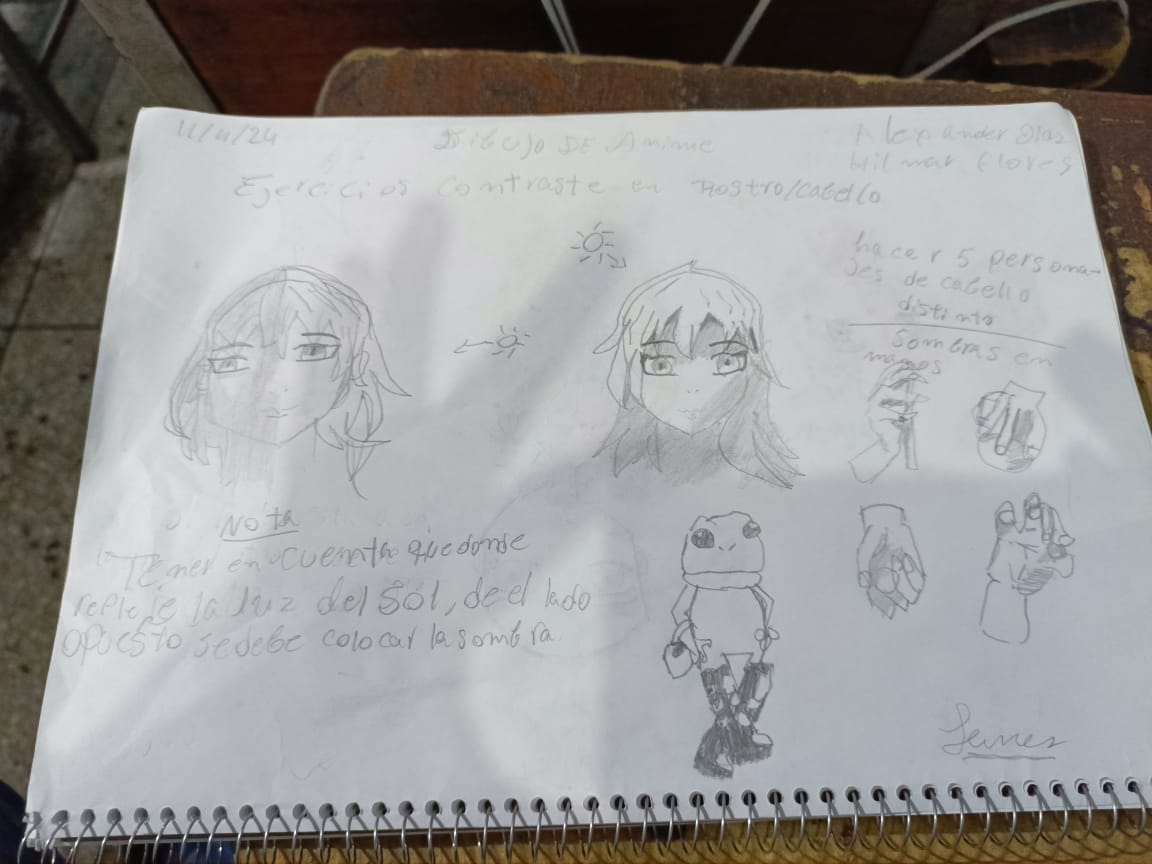 11/11/24
Dibujo DE Anime
Alexander Diaz
Wilmar Flores
Ejercicios Contraste en Rostro/Cabello
hacer 5 persona-
jes de cabello
distinto
Sombras en
manos
Nota
Tener en cuenta que donde
refleje la luz del Sol, de el lado
opuesto se debe colocar la sombra.